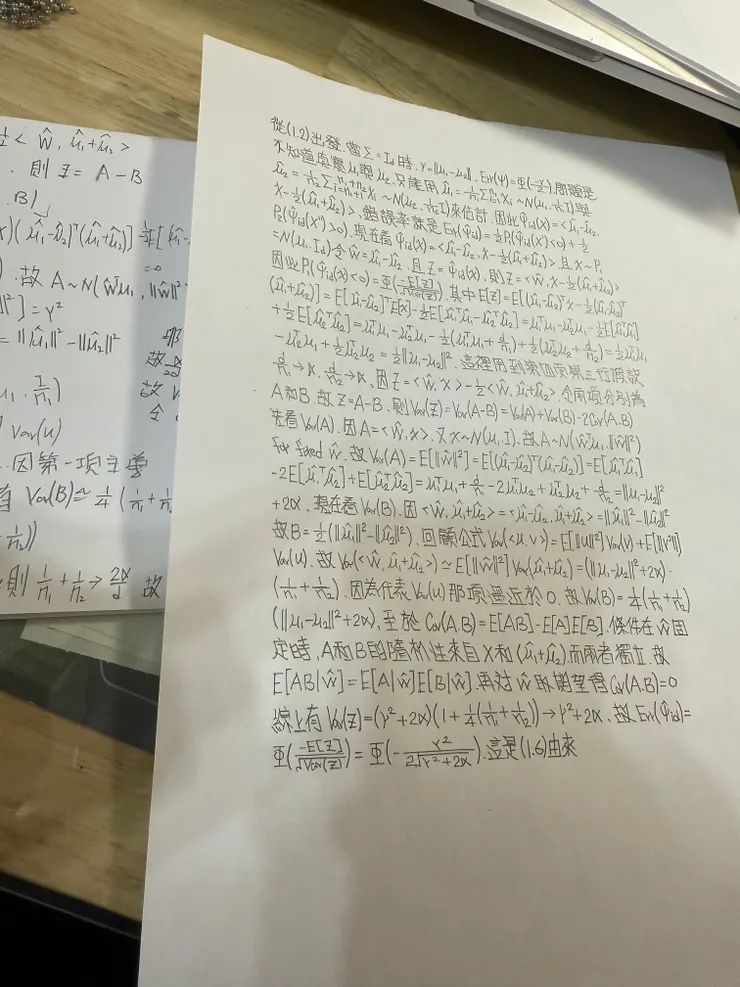 ½< ŵ, μ̂₁+μ̂₂ >
. 則 Z = A − B
B)
)(μ̂₁−μ̂₂)ᵀ(μ̂₁+μ̂₂)]
). 故 A~N(ŵᵀμ₁, ‖ŵ‖²
‖²] = γ²
= ‖μ̂₁‖²−‖μ̂₂‖²
故
μ₁, I/n₁)
故
] Var(u)
令
. 因第一項主導
有 Var(B)≈¼(1/n₁+1/n₂
1/n₂))
則 1/n₁+1/n₂→2α/d 故
從(1.2)出發,當Σ=I_d時,γ=‖μ₁−μ₂‖, Err(ψ)=Φ(−γ/2).問題是
不知道真實μ₁與μ₂,只能用μ̂₁=1/n₁ Σ_{i=1}^{n₁} x_i ~N(μ₁, 1/n₁ I)與
μ̂₂=1/n₂ Σ_{i=n₁+1}^{n₁+n₂} x_i ~N(μ₂, 1/n₂ I)來估計.因此ψ̂_id(x)=<μ̂₁−μ̂₂,
x−½(μ̂₁+μ̂₂)>,錯誤率就是Err(ψ̂_id)=½P₁(ψ̂_id(x)<0)+½
P₂(ψ̂_id(x)>0).現在看ψ̂_id(x)=<μ̂₁−μ̂₂, x−½(μ̂₁+μ̂₂)>,且x~P₁
=N(μ₁, I_d)令ŵ=μ̂₁−μ̂₂,且Z=ψ̂_id(x).則Z=<ŵ, x−½(μ̂₁+μ̂₂)>
因此P₁(ψ̂_id(x)<0)=Φ(−E[Z]/√Var(Z)).其中E[Z]=E[(μ̂₁−μ̂₂)ᵀx−½(μ̂₁−μ̂₂)ᵀ
(μ̂₁+μ̂₂)]=E[μ̂₁−μ̂₂]ᵀE[x]−½E[μ̂₁ᵀμ̂₁−μ̂₂ᵀμ̂₂]=μ₁ᵀμ₁−μ₂ᵀμ₁−½E[μ̂₁ᵀμ̂₁]
+½E[μ̂₂ᵀμ̂₂]=μ₁ᵀμ₁−μ₂ᵀμ₁−½(μ₁ᵀμ₁+d/n₁)+½(μ₂ᵀμ₂+d/n₂)=½μ₁ᵀμ₁
−μ₂ᵀμ₁+½μ₂ᵀμ₂=½‖μ₁−μ₂‖².這裡用到第四頁第三行假設
d/n₁→α, d/n₂→α.因Z=<ŵ, x>−½<ŵ, μ̂₁+μ̂₂>令兩項分別為
A和B.故Z=A−B.則Var(Z)=Var(A−B)=Var(A)+Var(B)−2Cov(A,B)
先看Var(A).因A=<ŵ, x>.又x~N(μ₁, I).故A~N(ŵᵀμ₁, ‖ŵ‖²)
for fixed ŵ.故Var(A)=E[‖ŵ‖²]=E[(μ̂₁−μ̂₂)ᵀ(μ̂₁−μ̂₂)]=E[μ̂₁ᵀμ̂₁]
−2E[μ̂₁ᵀμ̂₂]+E[μ̂₂ᵀμ̂₂]=μ₁ᵀμ₁+d/n₁−2μ₁ᵀμ₂+μ₂ᵀμ₂+d/n₂=‖μ₁−μ₂‖²
+2α.現在看Var(B).因<ŵ, μ̂₁+μ̂₂>=<μ̂₁−μ̂₂, μ̂₁+μ̂₂>=‖μ̂₁‖²−‖μ̂₂‖²
故B=½(‖μ̂₁‖²−‖μ̂₂‖²).回顧公式Var(<u,v>)=E[‖u‖²]Var(v)+E[‖v‖²]
Var(u).故Var(<ŵ, μ̂₁+μ̂₂>)≃E[‖ŵ‖²]Var(μ̂₁+μ̂₂)=(‖μ₁−μ₂‖²+2α)·
(1/n₁+1/n₂).因為代表Var(u)那項逼近於0.故Var(B)=¼(1/n₁+1/n₂)
(‖μ₁−μ₂‖²+2α),至於Cov(A,B)=E[AB]−E[A]E[B].條件在ŵ固
定時,A和B的隨機性來自x和(μ̂₁+μ̂₂),而兩者獨立.故
E[AB|ŵ]=E[A|ŵ]E[B|ŵ].再對ŵ取期望得Cov(A,B)=0
綜上有Var(Z)=(γ²+2α)(1+¼(1/n₁+1/n₂))→γ²+2α.故Err(ψ̂_id)=
Φ(−E[Z]/√Var(Z))=Φ(−γ²/(2√γ²+2α)).這是(1.6)由來